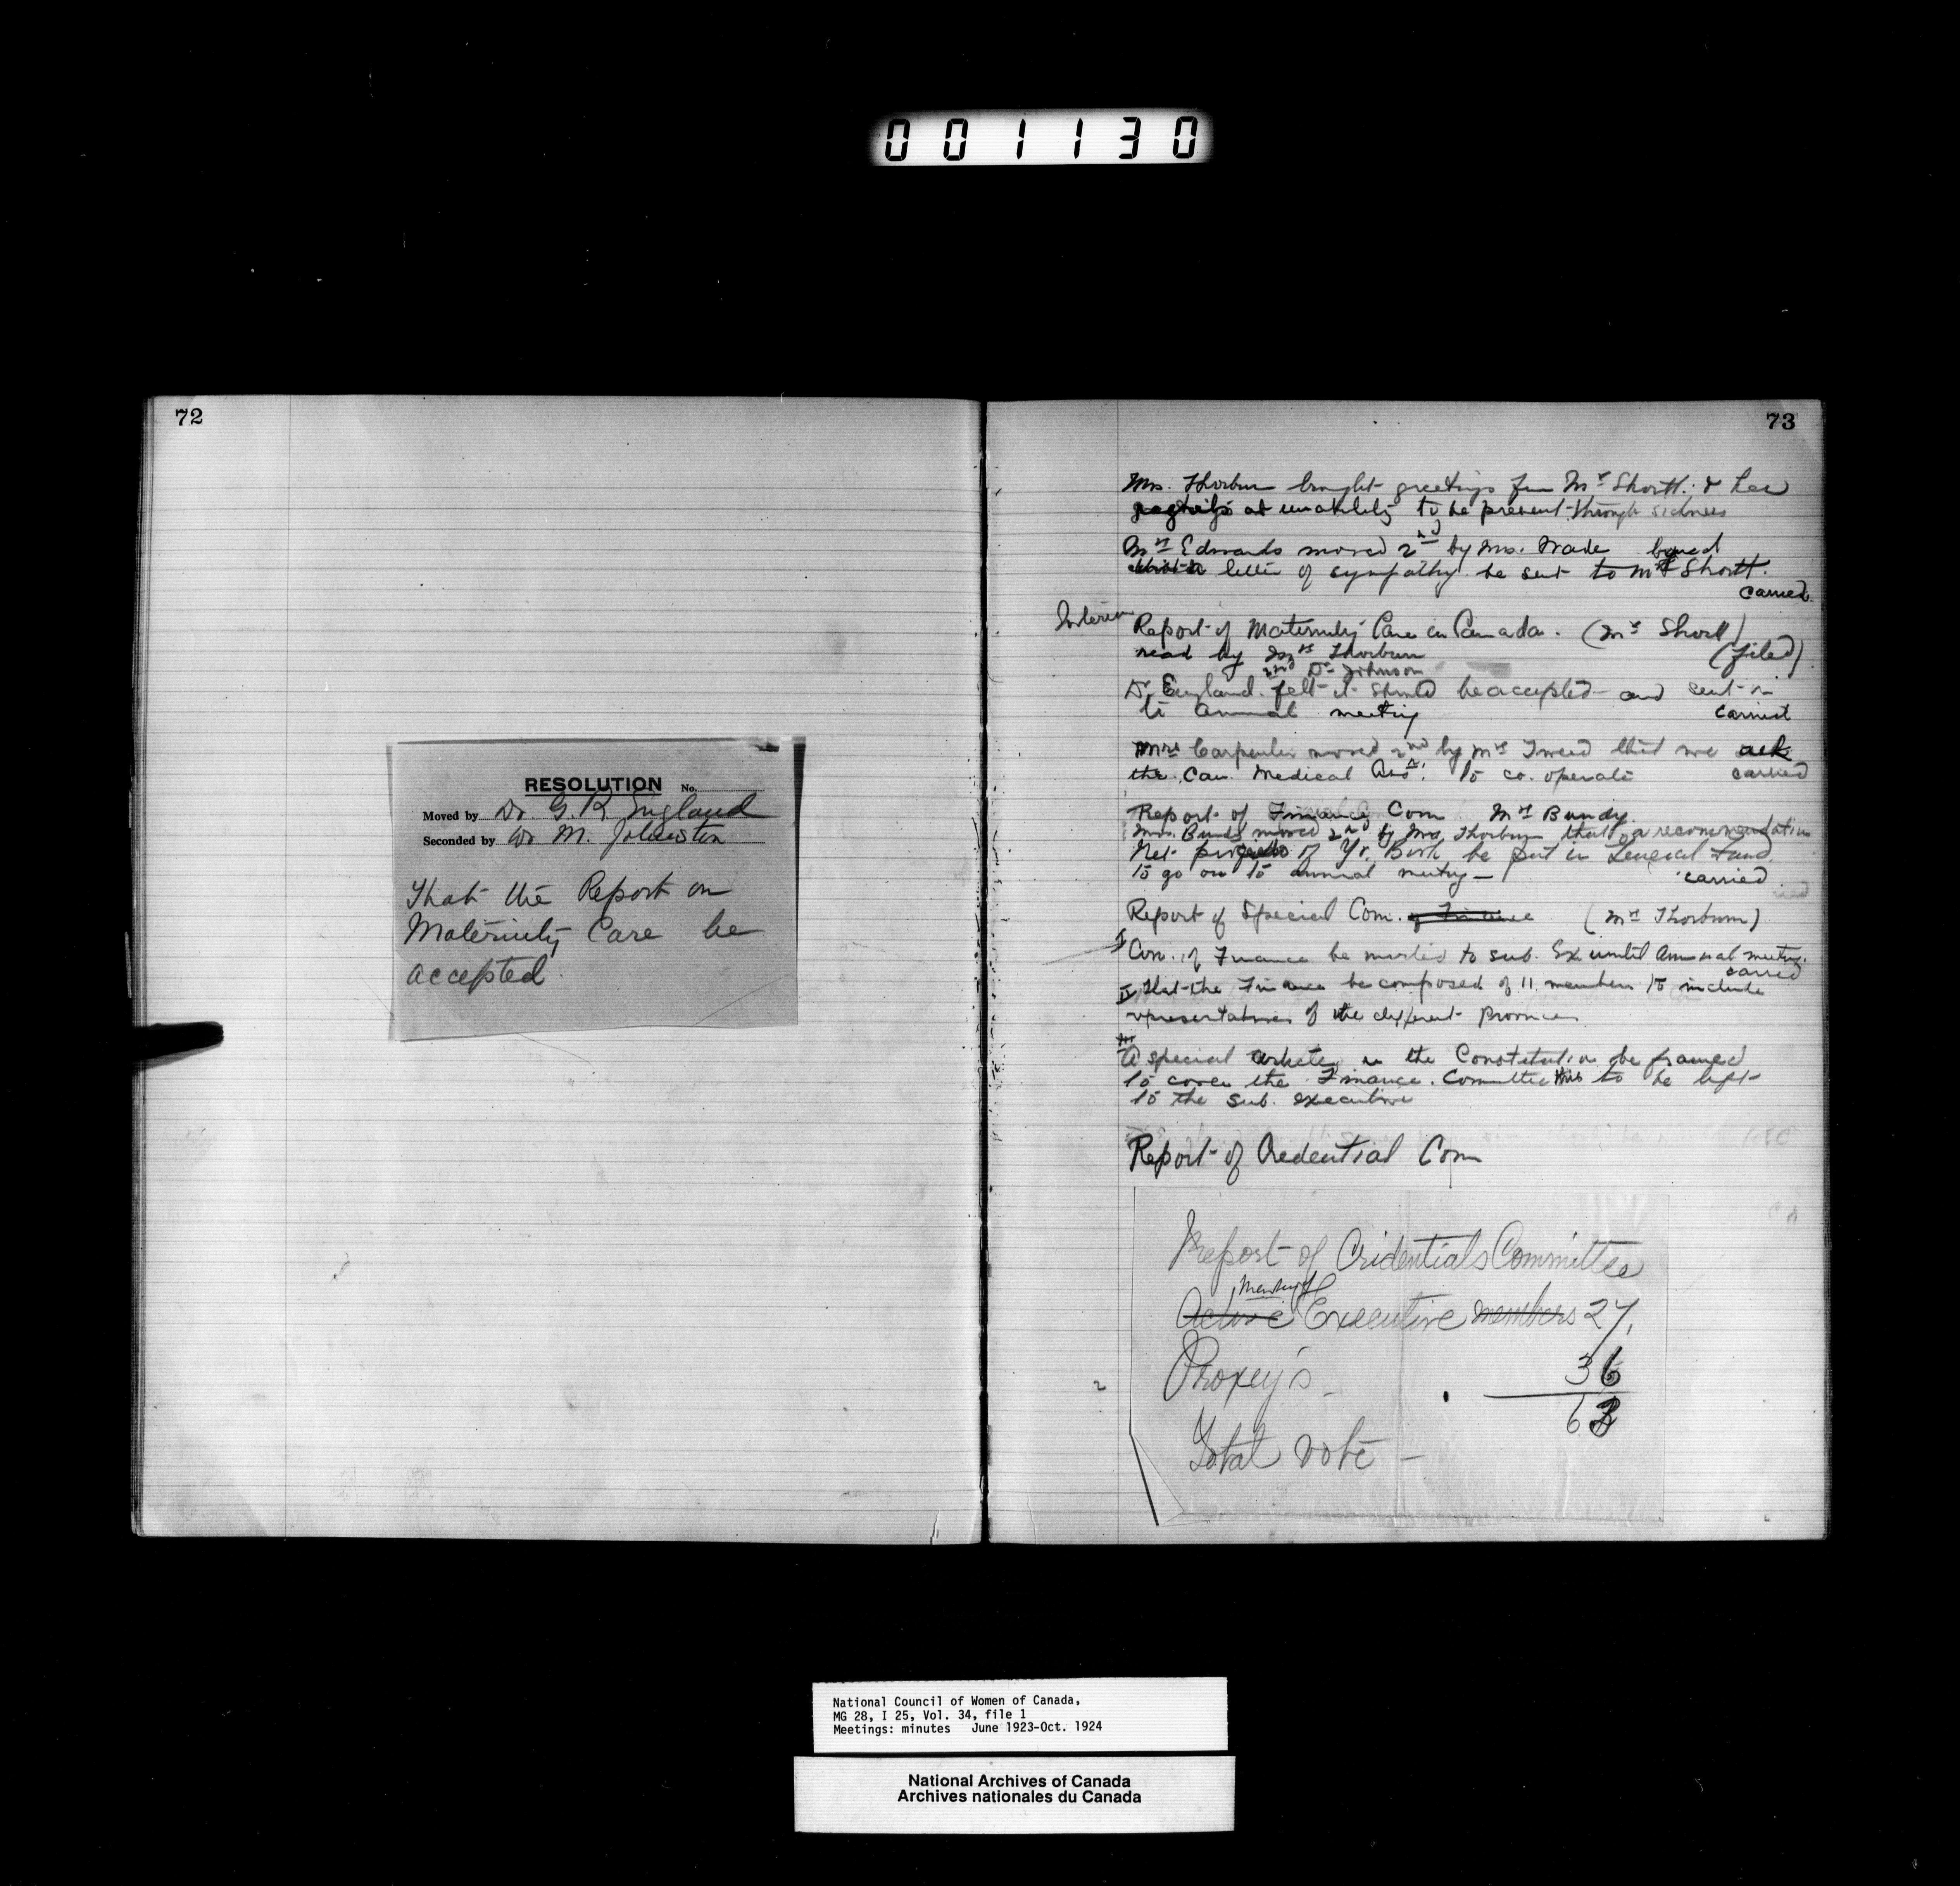 001130
72
RESOLUTION No.
Moved by Dr G. R. England
Seconded by Dr M. Johnston
That the Report on
Maternity Care be
accepted.
73
Mrs. Thorburn brought greetings from Mrs Shortt. & her
at unability to be present through sickness
Mrs Edwards moved 2nd by Mrs. Wade
letter of sympathy be sent to Mrs Shortt.
carried.
Interim
Report of Maternity Care in Canada. (Mrs Shortt)
read by Mrs Thorburn (filed)
2nd Dr Johnson
Dr England felt it should be accepted and sent on
to annual meeting carried
Mrs Carpenter moved 2nd by Mrs Tweed that we ask
the Can. Medical Ass. to co. operate carried
Report of Finance Com Mrs Bundy.
Mrs. Bundy moved 2nd by Mrs Thorburn that a recommendation
Net of Yr. Book be put in General Fund.
to go on to annual meeting — carried
Report of Special Com. of Finance (Mrs Thorburn)
I Con. of Finance be to sub. Ex until Annual meeting.
carried
II That the Finance be composed of 11 members to include
representatives of the different Provinces
III
A special article in the Constitution be framed
to cover the Finance. Committee this to be left
to the sub. executive
Report of Credential Com
Report of Cridentials Committee
Members of
Active Executive members 27,
Proxey's 36
63
Total vote —
National Council of Women of Canada,
MG 28, I 25, Vol. 34, file 1
Meetings: minutes June 1923-Oct. 1924
National Archives of Canada
Archives nationales du Canada